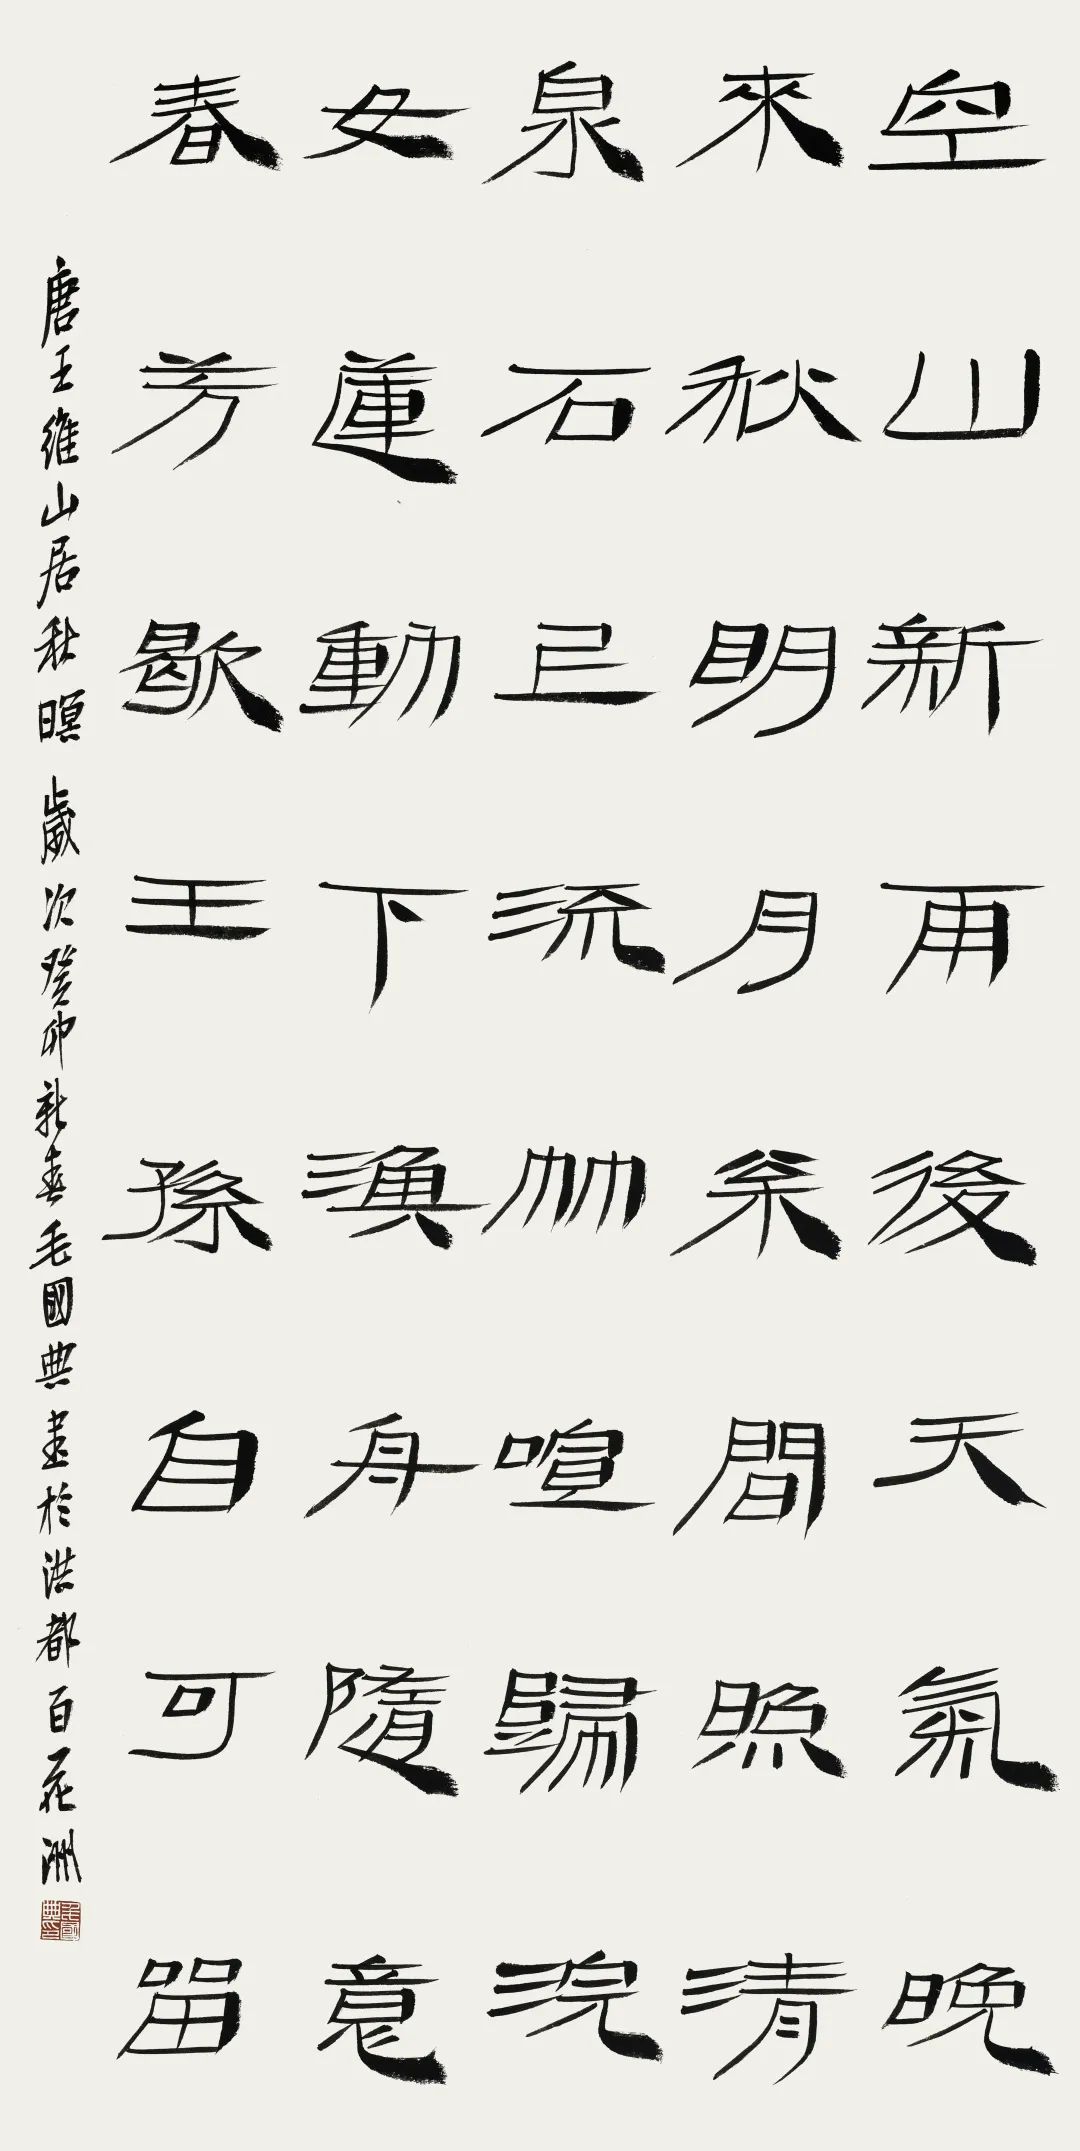 空山新雨後天氣晚
來秋明月枀間照清
泉石上流竹喧歸浣
女蓮動下漁舟隨意
春芳歇王孫自可留
唐王維山居秋暝 歲次癸卯新春毛國典書於洪都百花洲
毛國典印